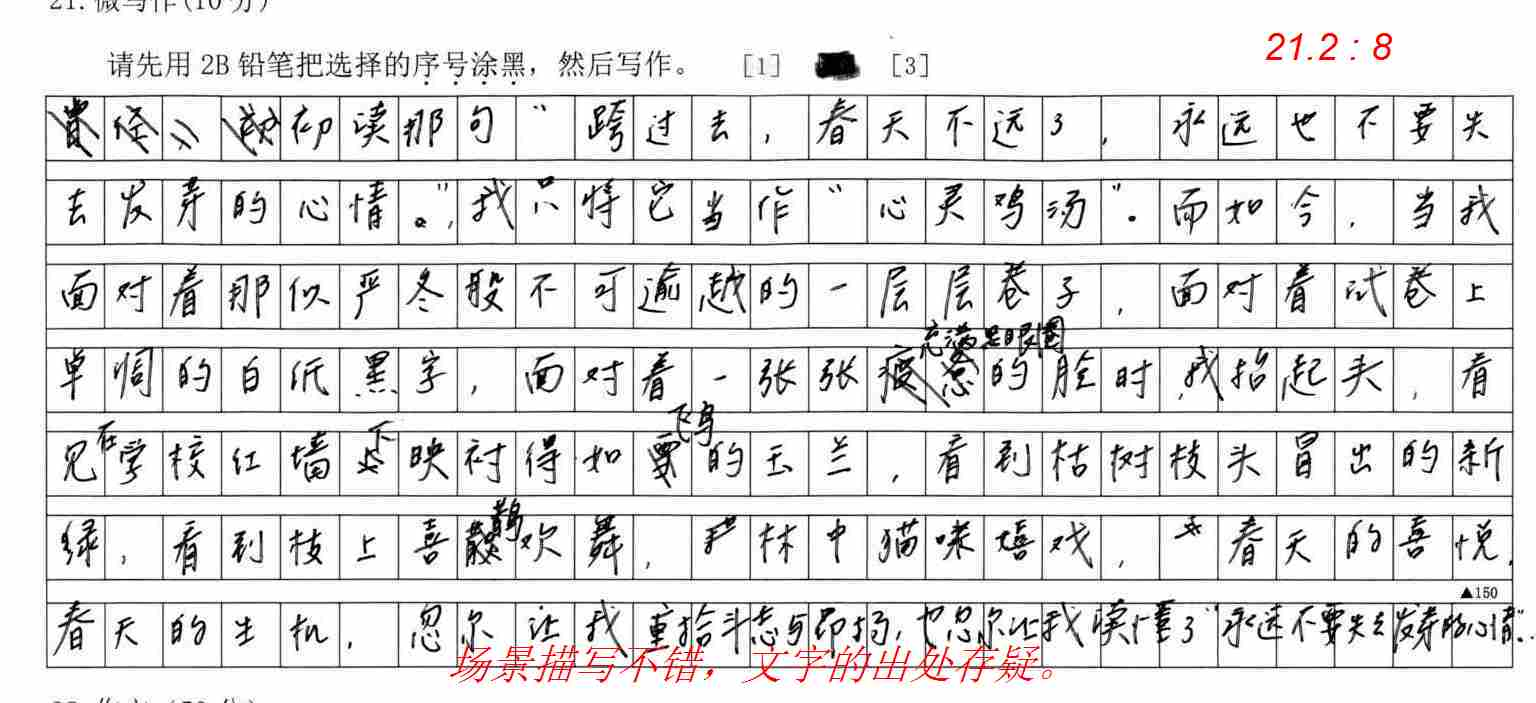 21.微写作(10分)
21.2 : 8
请先用 2B 铅笔把选择的序号涂黑，然后写作。 [1] [3]
初读那句“跨过去，春天不远了，永远也不要失
去发芽的心情。”，我只将它当作“心灵鸡汤”。而如今，当我
面对着那似严冬般不可逾越的一层层卷子，面对着试卷上
单调的白纸黑字，面对着一张张充满黑眼圈的脸时，我抬起头，看
见在学校红墙下映衬得如飞鸟的玉兰，看到枯树枝头冒出的新
绿，看到枝上喜鹊欢舞，林中猫咪嬉戏，春天的喜悦，
▲150
春天的生机，忽尔让我重拾斗志与昂扬，也忽尔让我读懂了“永远不要失去发芽的心情”。
场景描写不错，文字的出处存疑。